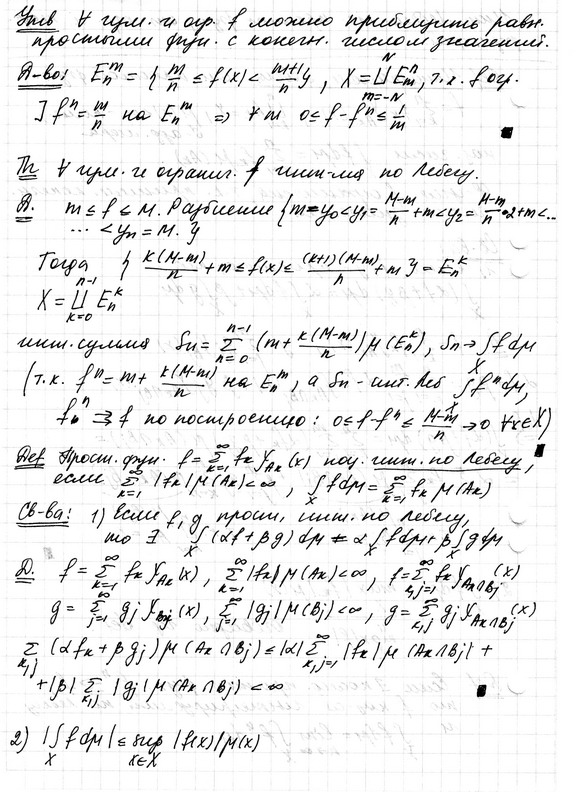 Утв ∀ изм. и огр. f можно приблизить равн.
простыми фун. с конечн. числом значений.
Д-во: E_n^m = { m/n ≤ f(x) < (m+1)/n }, X = ⊔_{m=-N}^{N} E_m^n, т.к. f огр.
] f^n = m/n на E_n^m ⇒ ∀ m 0 ≤ f - f^n ≤ 1/m ■
Th ∀ изм. и огранич. f инт-ма по Лебегу.
Д. m ≤ f ≤ M. Разбиение { m = y_0 < y_1 = (M-m)/n + m < y_2 = (M-m)/n · 2 + m < ...
... < y_n = M. }
Тогда { k(M-m)/n + m ≤ f(x) ≤ (k+1)(M-m)/n + m } = E_n^k
X = ⊔_{k=0}^{n-1} E_n^k
инт. сумма S_n = ∑_{n=0}^{n-1} (m + k(M-m)/n) μ(E_n^k), S_n → ∫_X f dμ
(т.к. f^n = m + k(M-m)/n на E_n^m, а S_n - инт. Леб ∫_X f^n dμ,
f^n ⇉ f по построению: 0 ≤ f - f^n ≤ (M-m)/n → 0 ∀x∈X) ■
Def Прост. фун. f = ∑_{k=1}^{∞} f_k χ_{A_k}(x) наз. инт. по Лебегу,
если ∑_{k=1}^{∞} |f_k| μ(A_k) < ∞, ∫_X f dμ = ∑_{k=1}^{∞} f_k μ(A_k)
Св-ва: 1) Если f, g прост, инт. по Лебегу,
то ∃ ∫_X (αf + βg) dμ = α ∫_X f dμ + β ∫_X g dμ
Д. f = ∑_{k=1}^{∞} f_k χ_{A_k}(x), ∑_{k=1}^{∞} |f_k| μ(A_k) < ∞, f = ∑_{k,j=1}^{∞} f_k χ_{A_k∩B_j}(x)
g = ∑_{j=1}^{∞} g_j χ_{B_j}(x), ∑_{j=1}^{∞} |g_j| μ(B_j) < ∞, g = ∑_{k,j}^{∞} g_j χ_{A_k∩B_j}(x)
∑_{k,j} (αf_k + βg_j) μ(A_k∩B_j) ≤ |α| ∑_{k,j=1}^{∞} |f_k| μ(A_k∩B_j) +
+ |β| ∑_{k,j} |g_j| μ(A_k∩B_j) < ∞ ■
2) |∫_X f dμ| ≤ sup_{x∈X} |f(x)| μ(x)